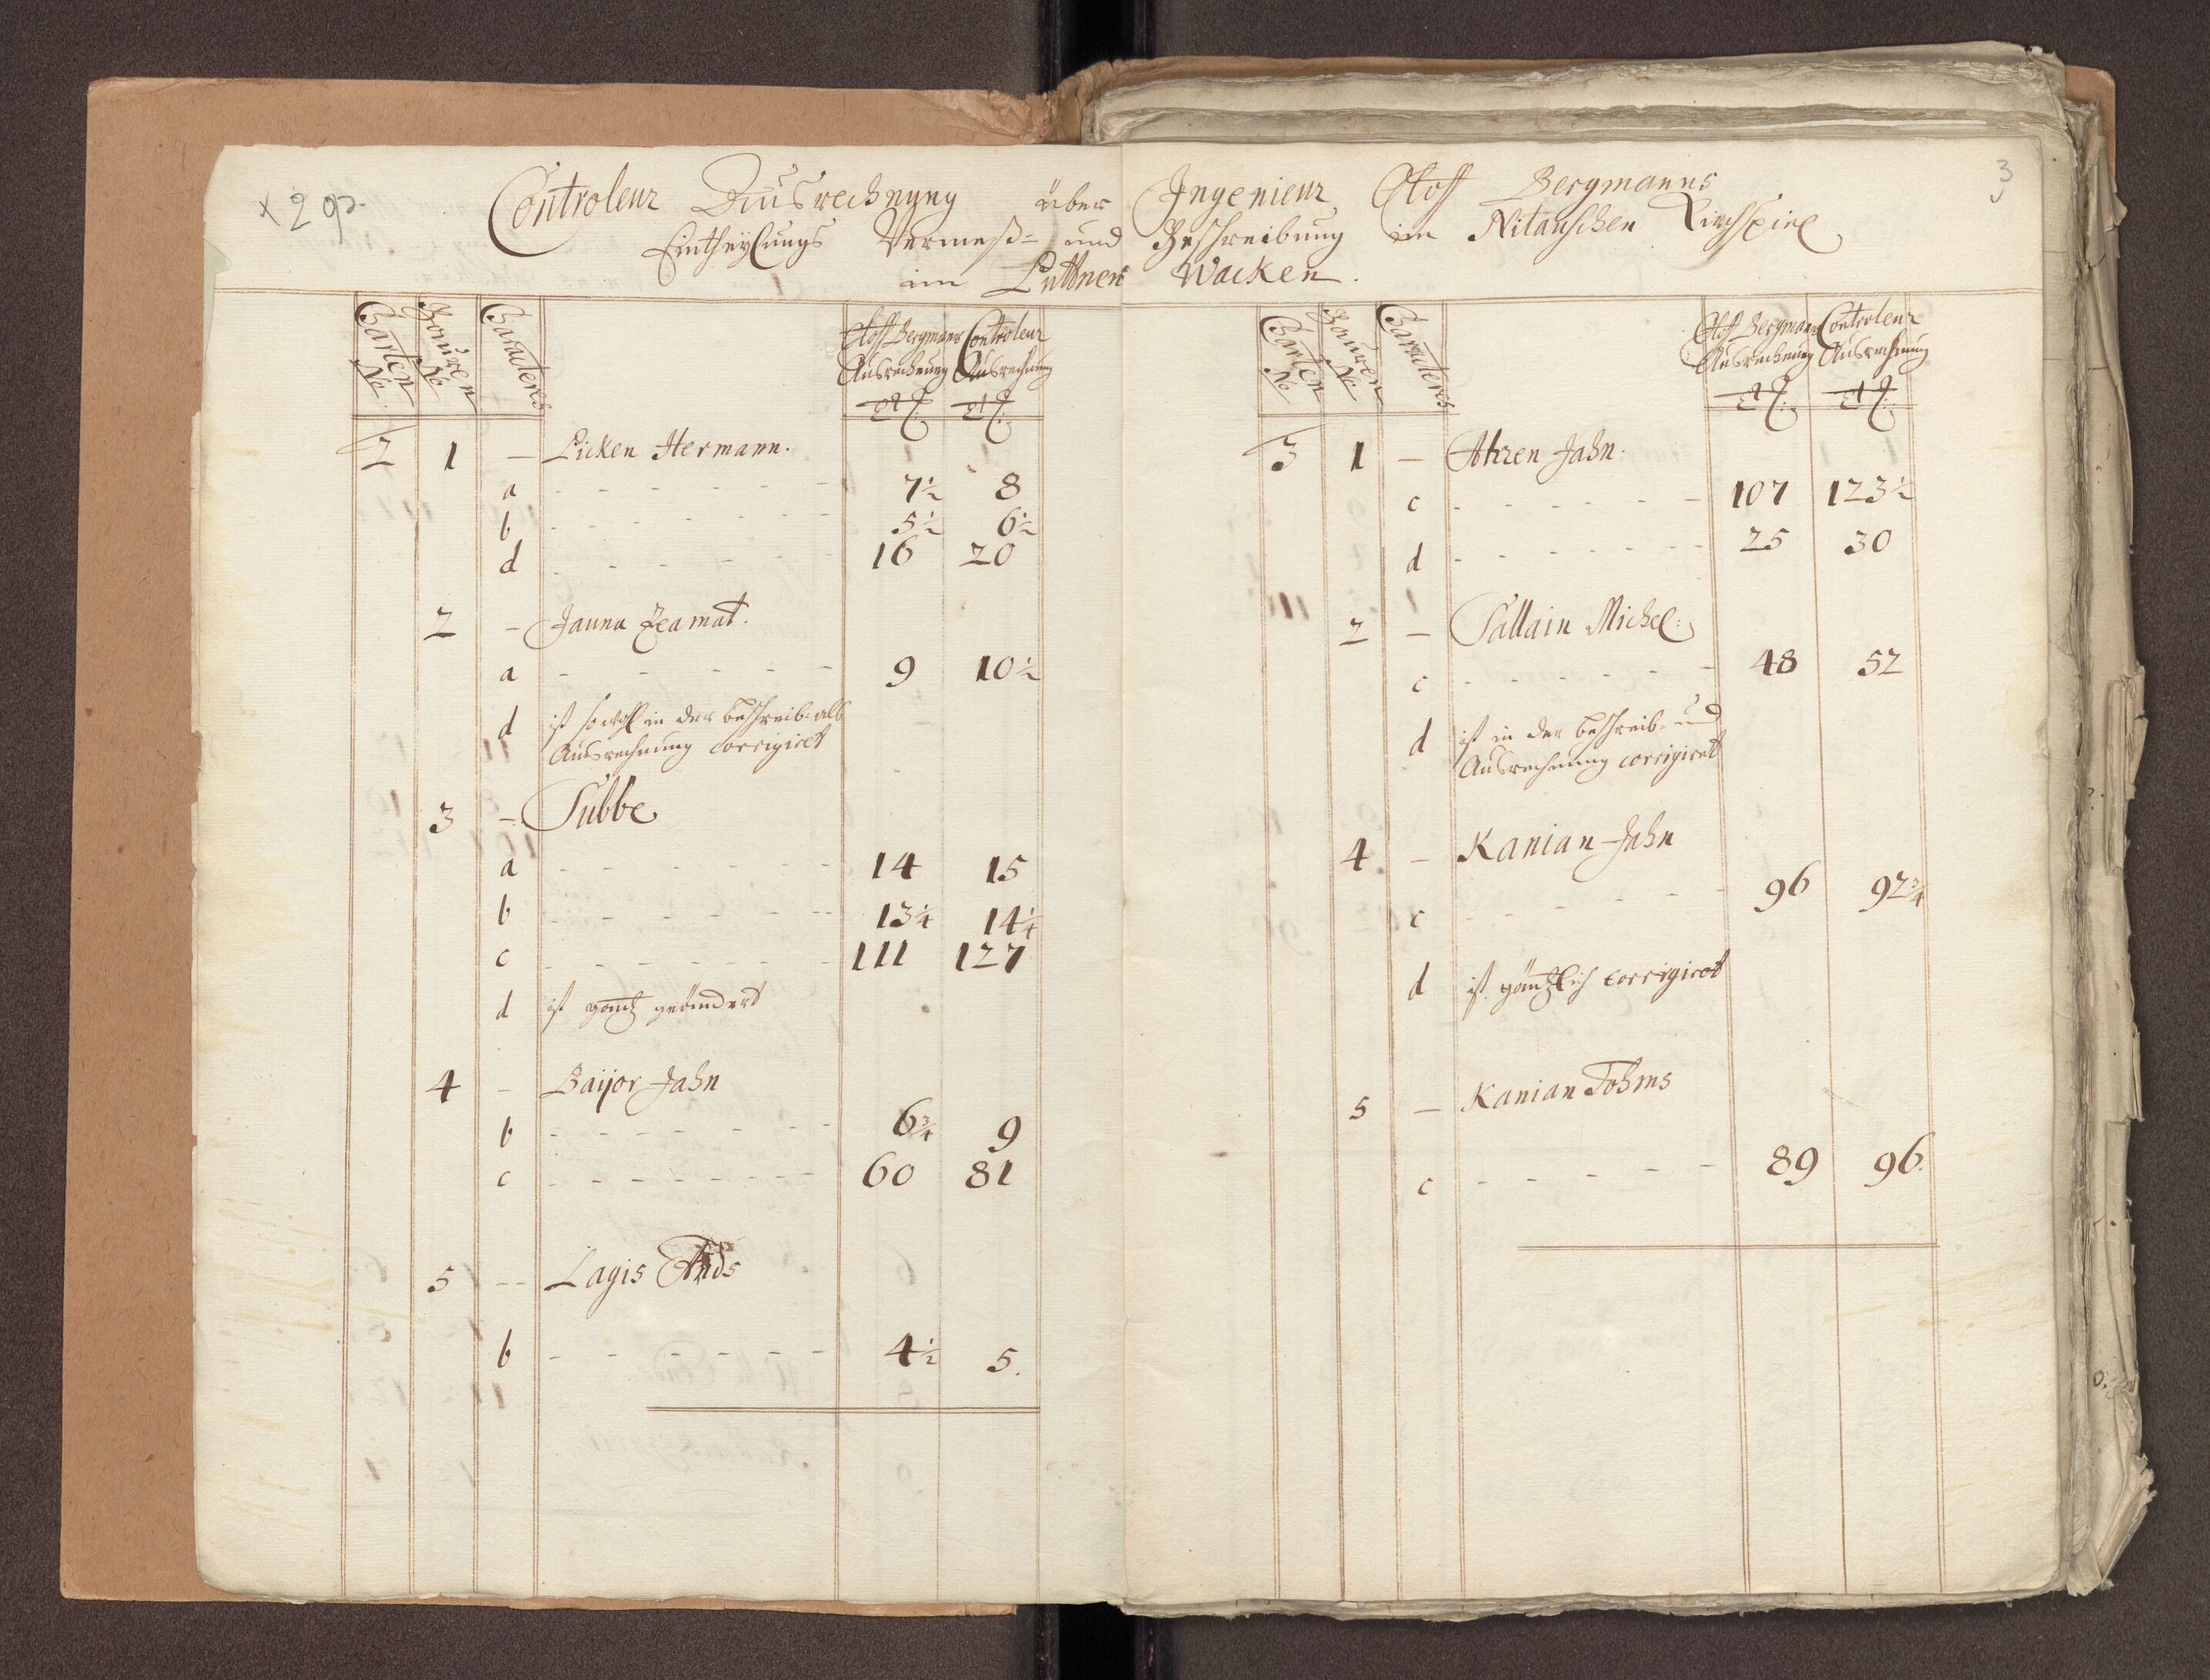 x 292.
3
Controleur Ausrechnung über Ingenieur Oloff Bergmanns
Eintheylungs Vermeß= und Beschreibung im Nitauschen Kirchspiel
im Luttners Wacken.
Carten No. Bauren No Caracteres Oloff Bergmans Ausrechnung Controleur Ausrechnung
2 1 — Licken Hermann.
a - - - - - - 7½ 8
b - - - - - - 5½ 6½
d - - - - - - 16 20
2 — Jauna Zeamat.
a - - - - - - 9 10½
d ist sowohl in der beschreib: als
Ausrechnung corrigiret
3 — Tubbe
a - - - - - - 14 15
b - - - - - - 13¼ 14¼
c - - - - - - 111 127
d ist gantz geändert
4 — Baijor Jahn
b - - - - - - 6¾ 9
c - - - - - - 60 81
5 -- Lagis Ands
b - - - - - - 4½ 5.
Carten No Bauren No Caracteres Oloff Bergmans Ausrechnung Controleur Ausrechnung
3 1 — Ahren Jahn.
c - - - - - - 107 123½
d - - - - - - 25 30
2 — Tallain Michel:
c - - - - - - 48 52
d ist in der beschreib- und
Ausrechnung corrigiret
4 — Kanian Jahn
c - - - - - - 96 92¾
d ist gäntzlich corrigiret
5 — Kanian Tohms
c - - - - - 89 96.